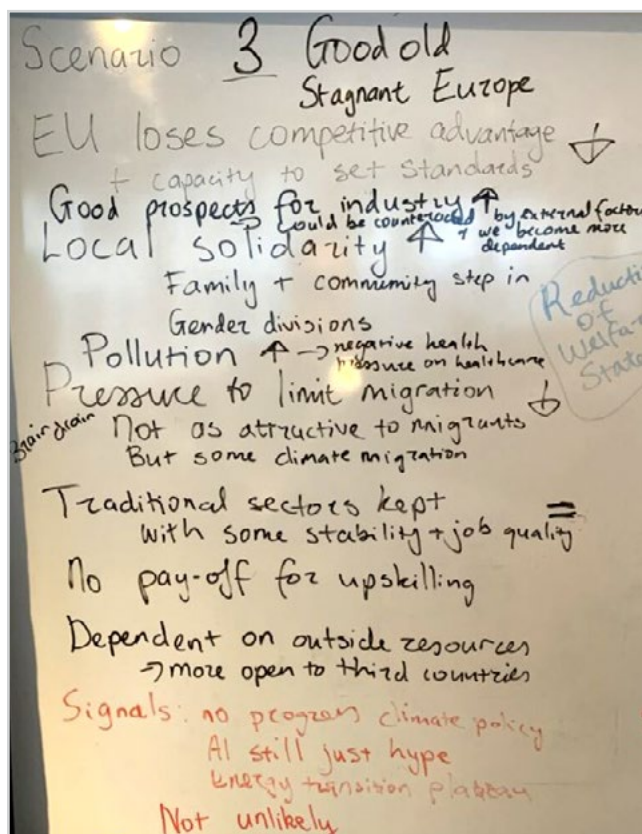 Scenario 3 Good old
Stagnant Europe
EU loses competitive advantage ↓
+ capacity to set standards
Good prospects for industry ↑
→ could be counteracted by external factors
+ we become more
dependent
Local solidarity ↑
Family + community step in
Gender divisions
Reduction
of
Welfare
State
Pollution ↑ → negative health
pressure on healthcare
Pressure to limit migration ↓
Brain drain
Not as attractive to migrants
But some climate migration
Traditional sectors kept =
with some stability + job quality
No pay-off for upskilling
Dependent on outside resources
→ more open to third countries
Signals: no progress climate policy
AI still just hype
Energy transition plateau
Not unlikely